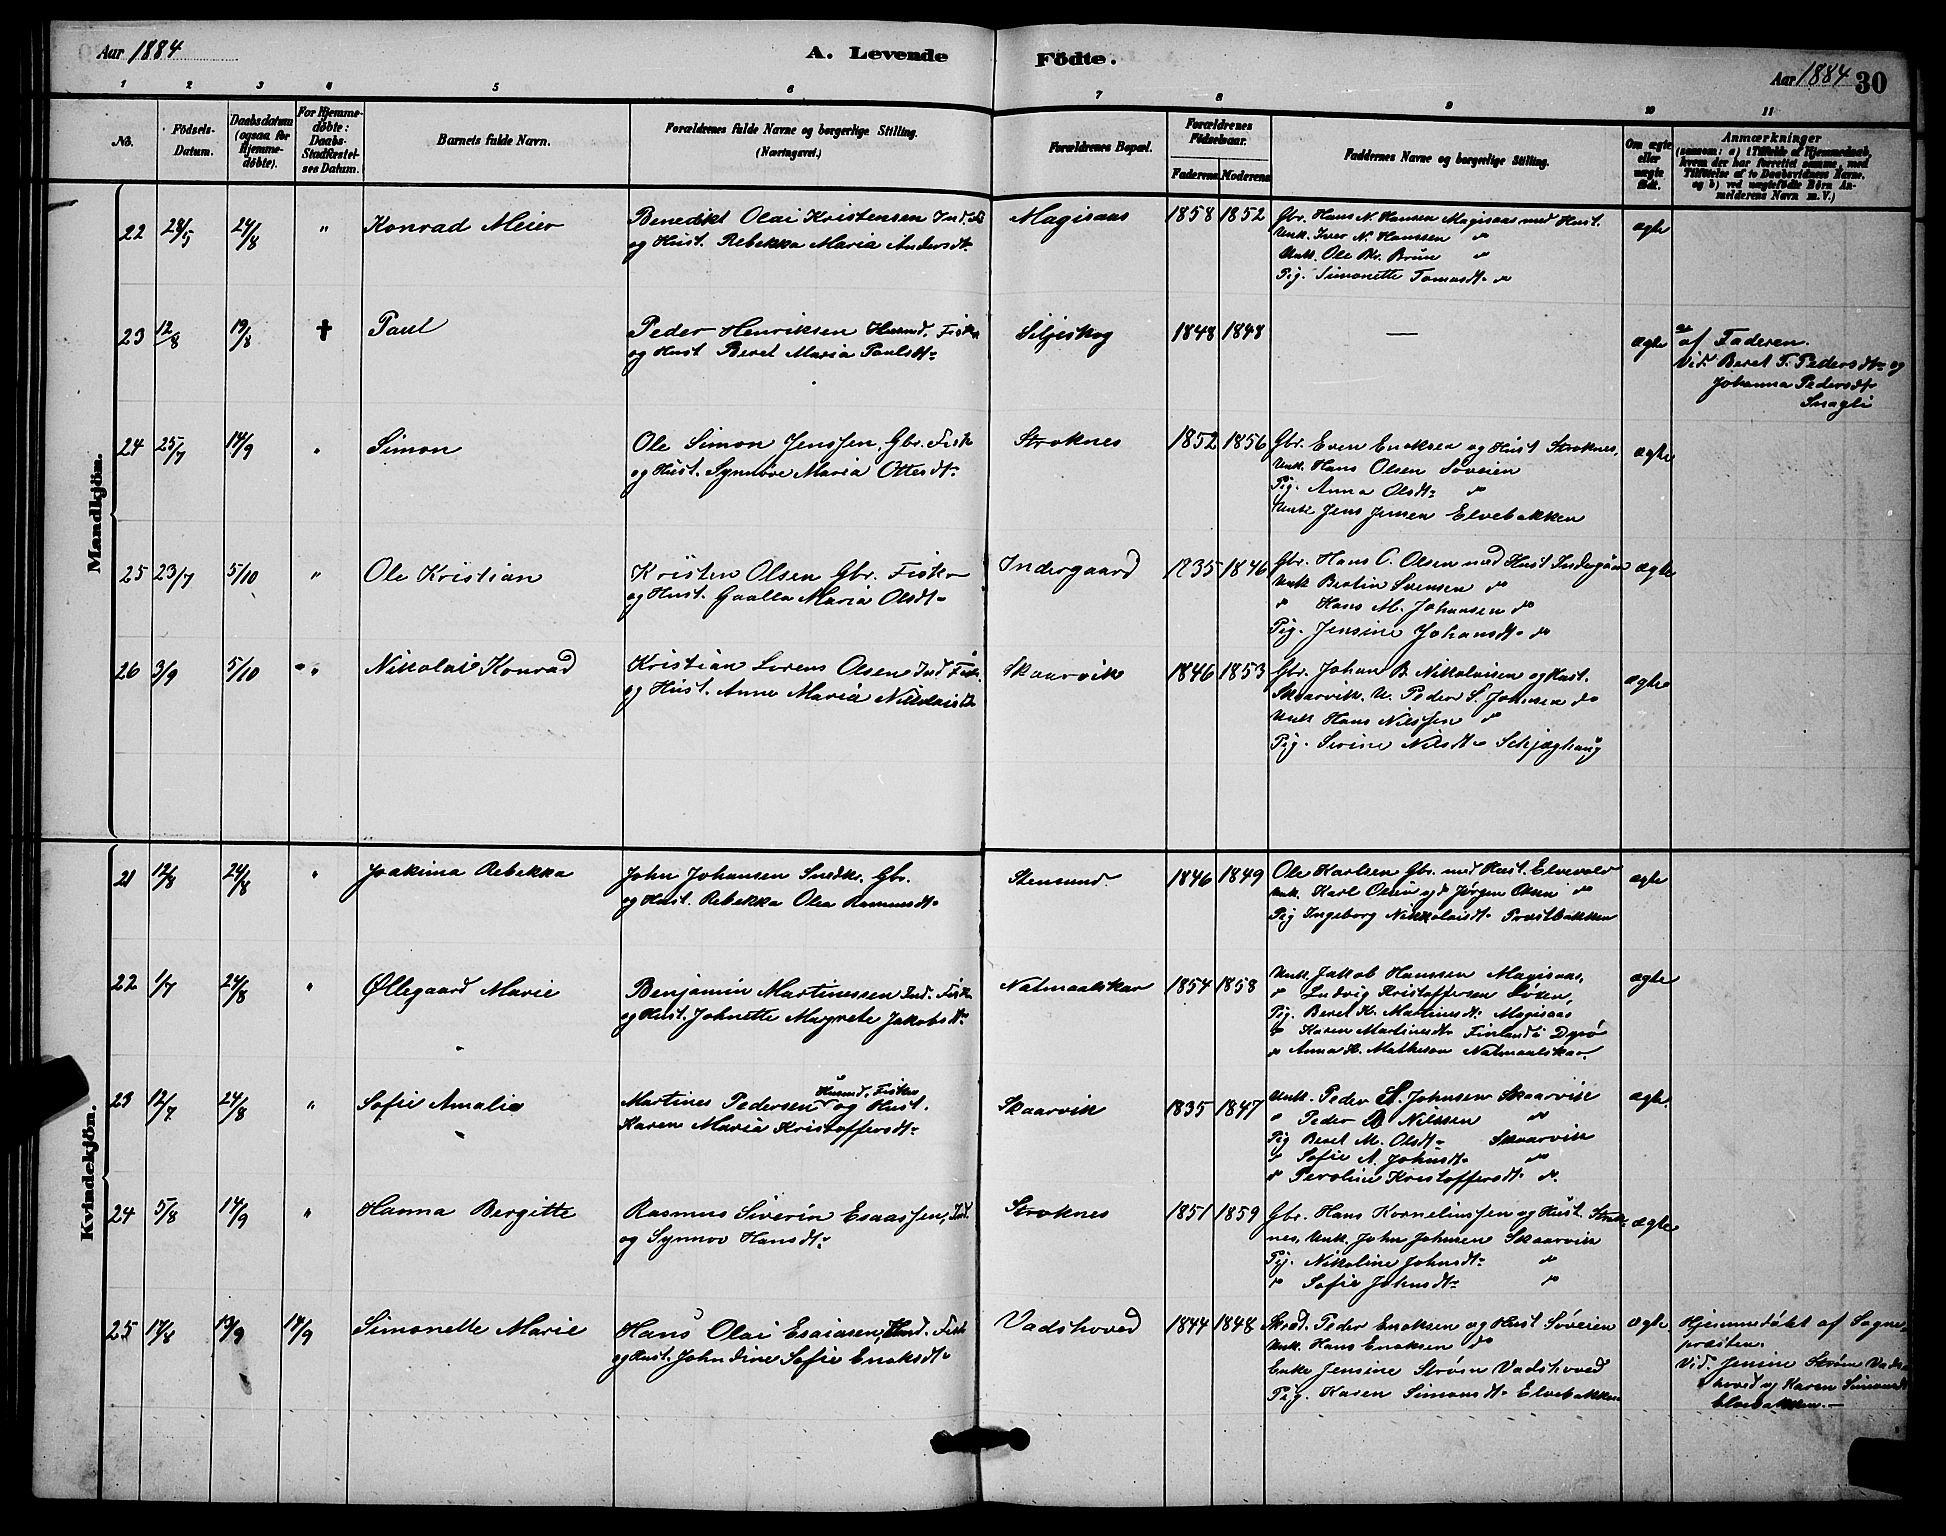 Aar 1884
A. Levende Födte.
Aar 1884 30
1 2 3 4 5 6 7 8 9 10 11
No. Födsels-Datum. Daabsdatum (ogsaa for Hjemme-döbte). For Hjemme-döbte: Daabs-Stadfæstel-ses Datum. Barnets fulde Navn. Forældrenes fulde Navne og borgerlige Stilling. (Næringsvei.) Forældrenes Bopæl. Forældrenes Födselsaar. Faderens Moderens Faddernes Navne og borgerlige Stilling. Om ægte eller uægte födt. Anmærkninger (saasom: a) i Tilfælde af Hjemmedaab, hvem der har forrettet samme, med Tilföielse af to Daabsvidners Navne, og b) ved uægtefödte Börn An-melderens Navn m. V.)
Mandkjön.
22 28/5 24/8 " Konrad Meier
Benedikt Olai Kristensen Ind. Fis
og Hust. Rebekka Maria Andersdt:
Magisaas 1858 1852
Gbr. Hans N. Hansen Magisaas med Hust.
Unk. Iver N. Hanssen do
Unk. Ole Kr. Brun do
Pig. Simonette Tomasdt: do
ægte
23 12/8 19/8 † Paul
Peder Henriksen Husmd. Fisk
og Hust Beret Maria Paulsdt:
Siljeskog 1848 1848
—
ægte
af Faderen.
Vid. Beret T. Pedersdt: og
Johanna Pedersdt:
24 25/7 14/9 " Simon
Ole Simon Jenssen, Gbr. Fisk
og Hust. Synnöve Maria Ottesdt:
Stroknes 1852 1856
Gbr. Even Enoksen og Hust Stroknes,
Unk. Hans Olsen Soveien
Pig. Anna Olsdt: do
Unk. Jens Jensen Elvebakken
ægte
25 23/7 5/10 " Ole Kristian
Kristen Olsen Gbr. Fisker
og Hust. Gaalla Maria Olsdt:
Indergaard 1835 1846
Gbr. Hans C. Olsen med Hust Indergaar
Unk Bertin Svensen do
do Hans M. Johansen do
Pig. Jensine Johansdt: do
ægte
26 3/9 5/10 " Nikolai Konrad
Kristian Lorens Olsen Ind Fisk.
og Hust. Anne Maria Nikolaisdt
Skaarvik 1846 1853
Gbr. Johan B. Nikolaisen og Hust.
Skaarvik. U. Peder S. Johnsen do
Unk Hans Nilssen do
Pig. Serine Nilsdt: Schjæghaug
ægte
Kvindekjön.
21 12/8 24/8 " Joakima Rebekka
John Johansen Snedk. Gbr.
og Hust. Rebekka Olea Rasmusdt:
Stensund. 1846 1849
Ole Karlsen Gbr. med Hust. Elvevold
Unk. Karl Olsen og do Jørgen Olsen do
Pig Ingeborg Nikkolaisdt: Præstbakken
ægte
22 1/7 24/8 " Øllegaard Marie
Benjamin Martinussen Ind. Fisk
og Hust. Johnette Magrete Jakobsdt:
Natmaalskar 1854 1858
Unk. Jakob Hanssen Magisaas,
do Ludvig Kristoffersen Løsen,
Pig. Beret K. Martinesdt: Magisaas
do Karen Martinesdt: Finland i Dyrö
do Anna H. Mathesen Natmaalskar.
ægte
23 12/7 24/8 " Sofie Amalie
Martines Pedersen Husmd. Fisker og Hust.
Karen Maria Kristoffersdt:
Skaarvik 1835 1847
Unk. Peder S. Johnsen Skaarvik
" Peder B Nilssen do
Pig Beret M. Olsdt: Skaarvik
do Sofie A. Johnsdt: do
do Peroline Kristoffersdt: do.
ægte.
24 5/8 14/9 " Hanna Bergitte
Rasmus Siverin Esaassen, Ind.
og Synnov Hansdt:
Stroknes 1851 1859
Gbr. Hans Korneliussen og Hust. Strok-
nes, Unk. John Johnsen Skaarvik
Pig. Nikoline Johnsdt: do
do Sofie Johnsdt: do
ægte
25 17/8 13/9 14/9 Simonette Marie
Hans Olai Esaiasen, Ind. Fisk
og Hust. Johndine Sofie Enoksdt:
Vadshoved 1844 1848
Skrd. Peder Enoksen og Hust Søveien
Unk. Hans Enoksen do
Enke Jensine Strøm Vadshoved
Pig. Karen Simonsdt: Elvebakken
ægte.
Hjemmedøbt af Sogne-
præsten.
Vid. Jensine Strøm Vads-
hoved og Karen Simonsdt
Elvebakken.—